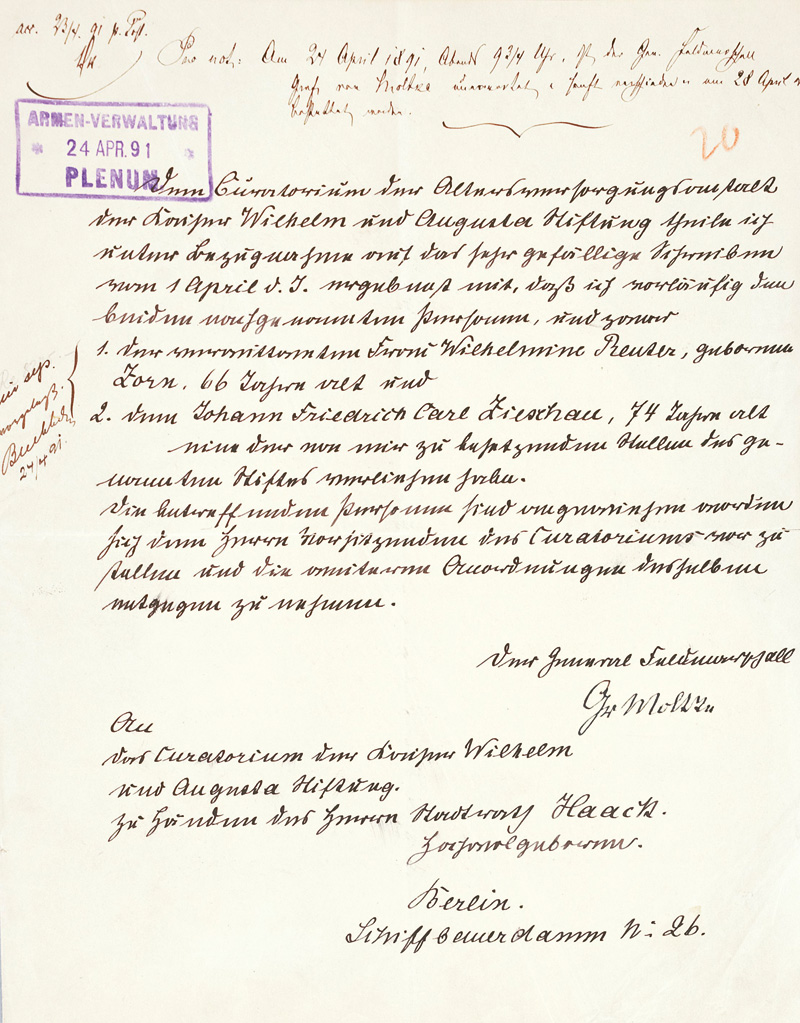 arr. 23/4. 91 p. Post.
Pro not: Am 24 April 1891, Abends 9 3/4 Uhr, ist der Gen. Feldmarschall
Graf von Moltke unerwartet u. sanft verschieden u. am 28 April
bestattet worden.
ARMEN-VERWALTUNG
* 24 APR. 91 *
PLENUM
20
Dem Curatorium der Altersversorgungsanstalt
der Kaiser Wilhelm und Augusta Stiftung theile ich
unter Bezugnahme auf das sehr gefällige Schreiben
vom 1 April d. J. ergebenst mit, daß ich vorläufig den
beiden nachgenannten Personen, und zwar
1. der verwittweten Frau Wilhelmine Reuter, geborenen
Zorn, 66 Jahre alt und
2. dem Johann Friedrich Carl Zieschau, 74 Jahre alt
eine der von mir zu besetzenden Stellen des ge-
nannten Stiftes verliehen habe.
Die betreffenden Personen sind angewiesen worden
sich dem Herrn Vorsitzenden des Curatoriums vor zu
stellen und die weiteren Anordnungen desselben
entgegen zu nehmen.
27/4 91.
Der General Feldmarschall
Gr Moltke
An
das Curatorium der Kaiser Wilhelm
und Augusta Stiftung.
zu Händen des Herrn Stadtrath Haack.
Hochwolgeboren.
Berlin.
Schiffbauerdamm No 26.